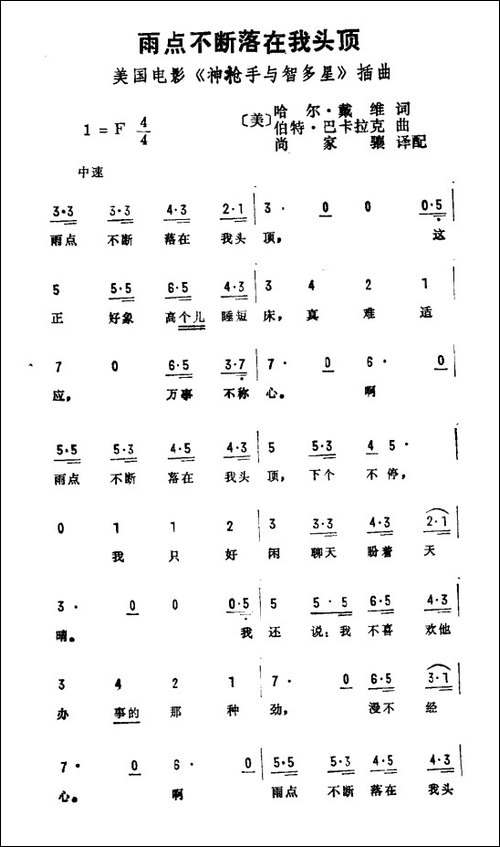 雨点不断落在我头顶
美国电影《神枪手与智多星》插曲
1=F 4/4
〔美〕哈尔·戴维 词
伯特·巴卡拉克 曲
尚家骧 译配
中速
3·3 3·3 4·3 2·1 | 3· 0 0 0·5 |
雨点 不断 落在 我头 顶, 这
5 5·5 6·5 4·3 | 3 4 2 1 |
正 好象 高个儿 睡短 床, 真 难 适
7 0 6·5 3·7 | 7· 0 6· 0 |
应, 万事 不称 心。 啊
5·5 5·3 4·5 4·3 | 5 5·3 4 5· |
雨点 不断 落在 我头 顶, 下个 不停,
0 1 1 2 | 3 3·3 4·3 2·1 |
我 只 好 闲 聊天 盼着 天
3· 0 0 0·5 | 5 5·5 6·5 4·3 |
晴。 我 还 说:我 不喜 欢他
3 4 2 1 | 7· 0 6·5 3·7 |
办 事的 那 种 劲, 漫不 经
7· 0 6· 0 | 5·5 5·3 4·5 4·3 |
心。 啊 雨点 不断 落在 我头